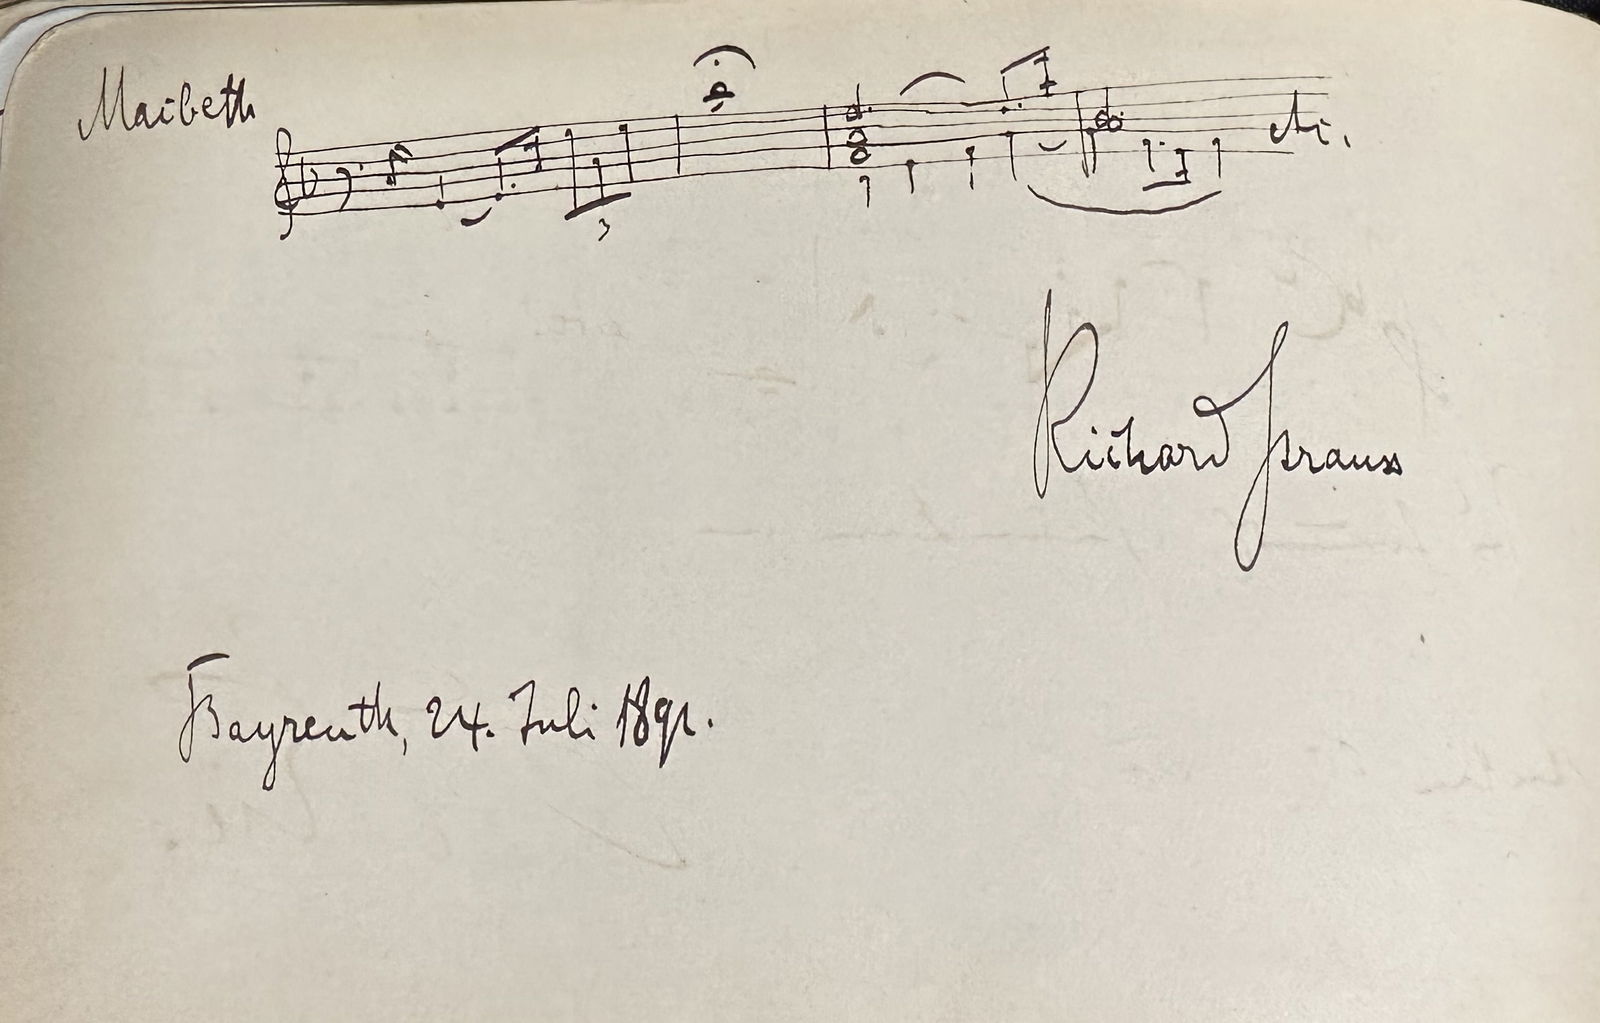 Macbeth
3
Richard Strauss
Bayreuth, 24. Juli 1891.